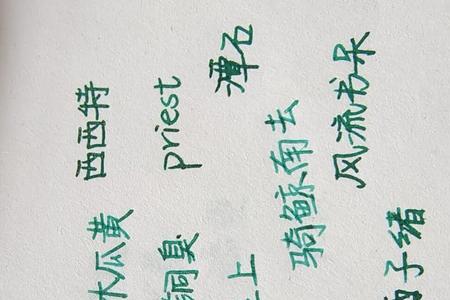 木瓜黄 西西特
臭 priest
上 潭石
骑鲸南去
风流书呆
子绪